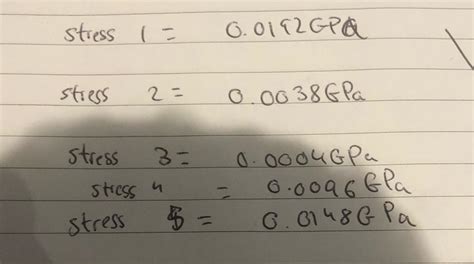 stress 1 = 0.0192GPa
stress 2 = 0.0038GPa
stress 3 = 0.0004GPa
stress 4 = 0.0096GPa
stress 5 = 0.0148GPa